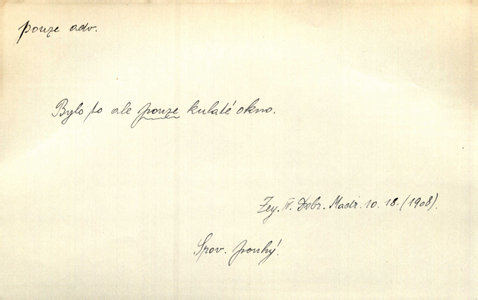 pouze adv.
Bylo to ale pouze kulaté okno.
Zey. V. Dobr. Madr. 10. 18. (1908).
Srov. pouhý.